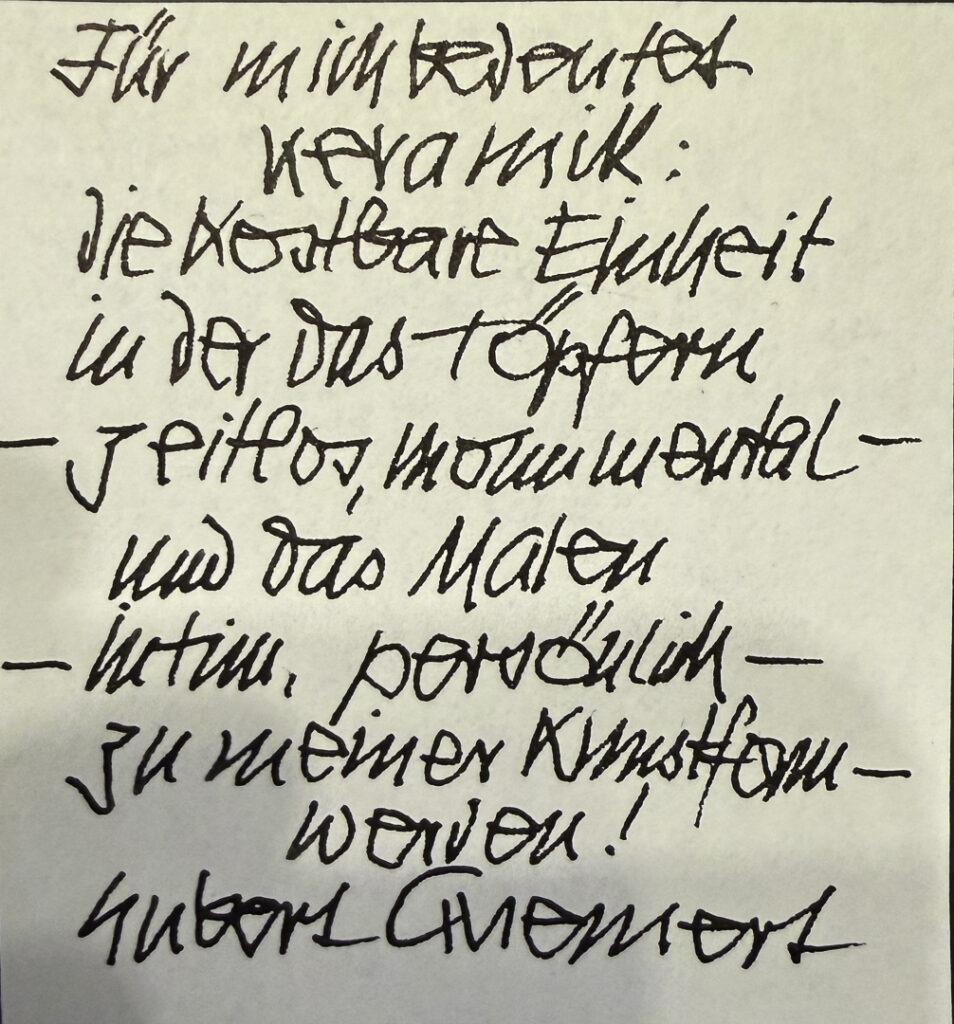 Für mich bedeutet
Keramik:
die kostbare Einheit
in der das Töpfern
— zeitlos, monumental —
und das Malen
— intim, persönlich —
zu meiner Kunstform —
werden!
Hubert